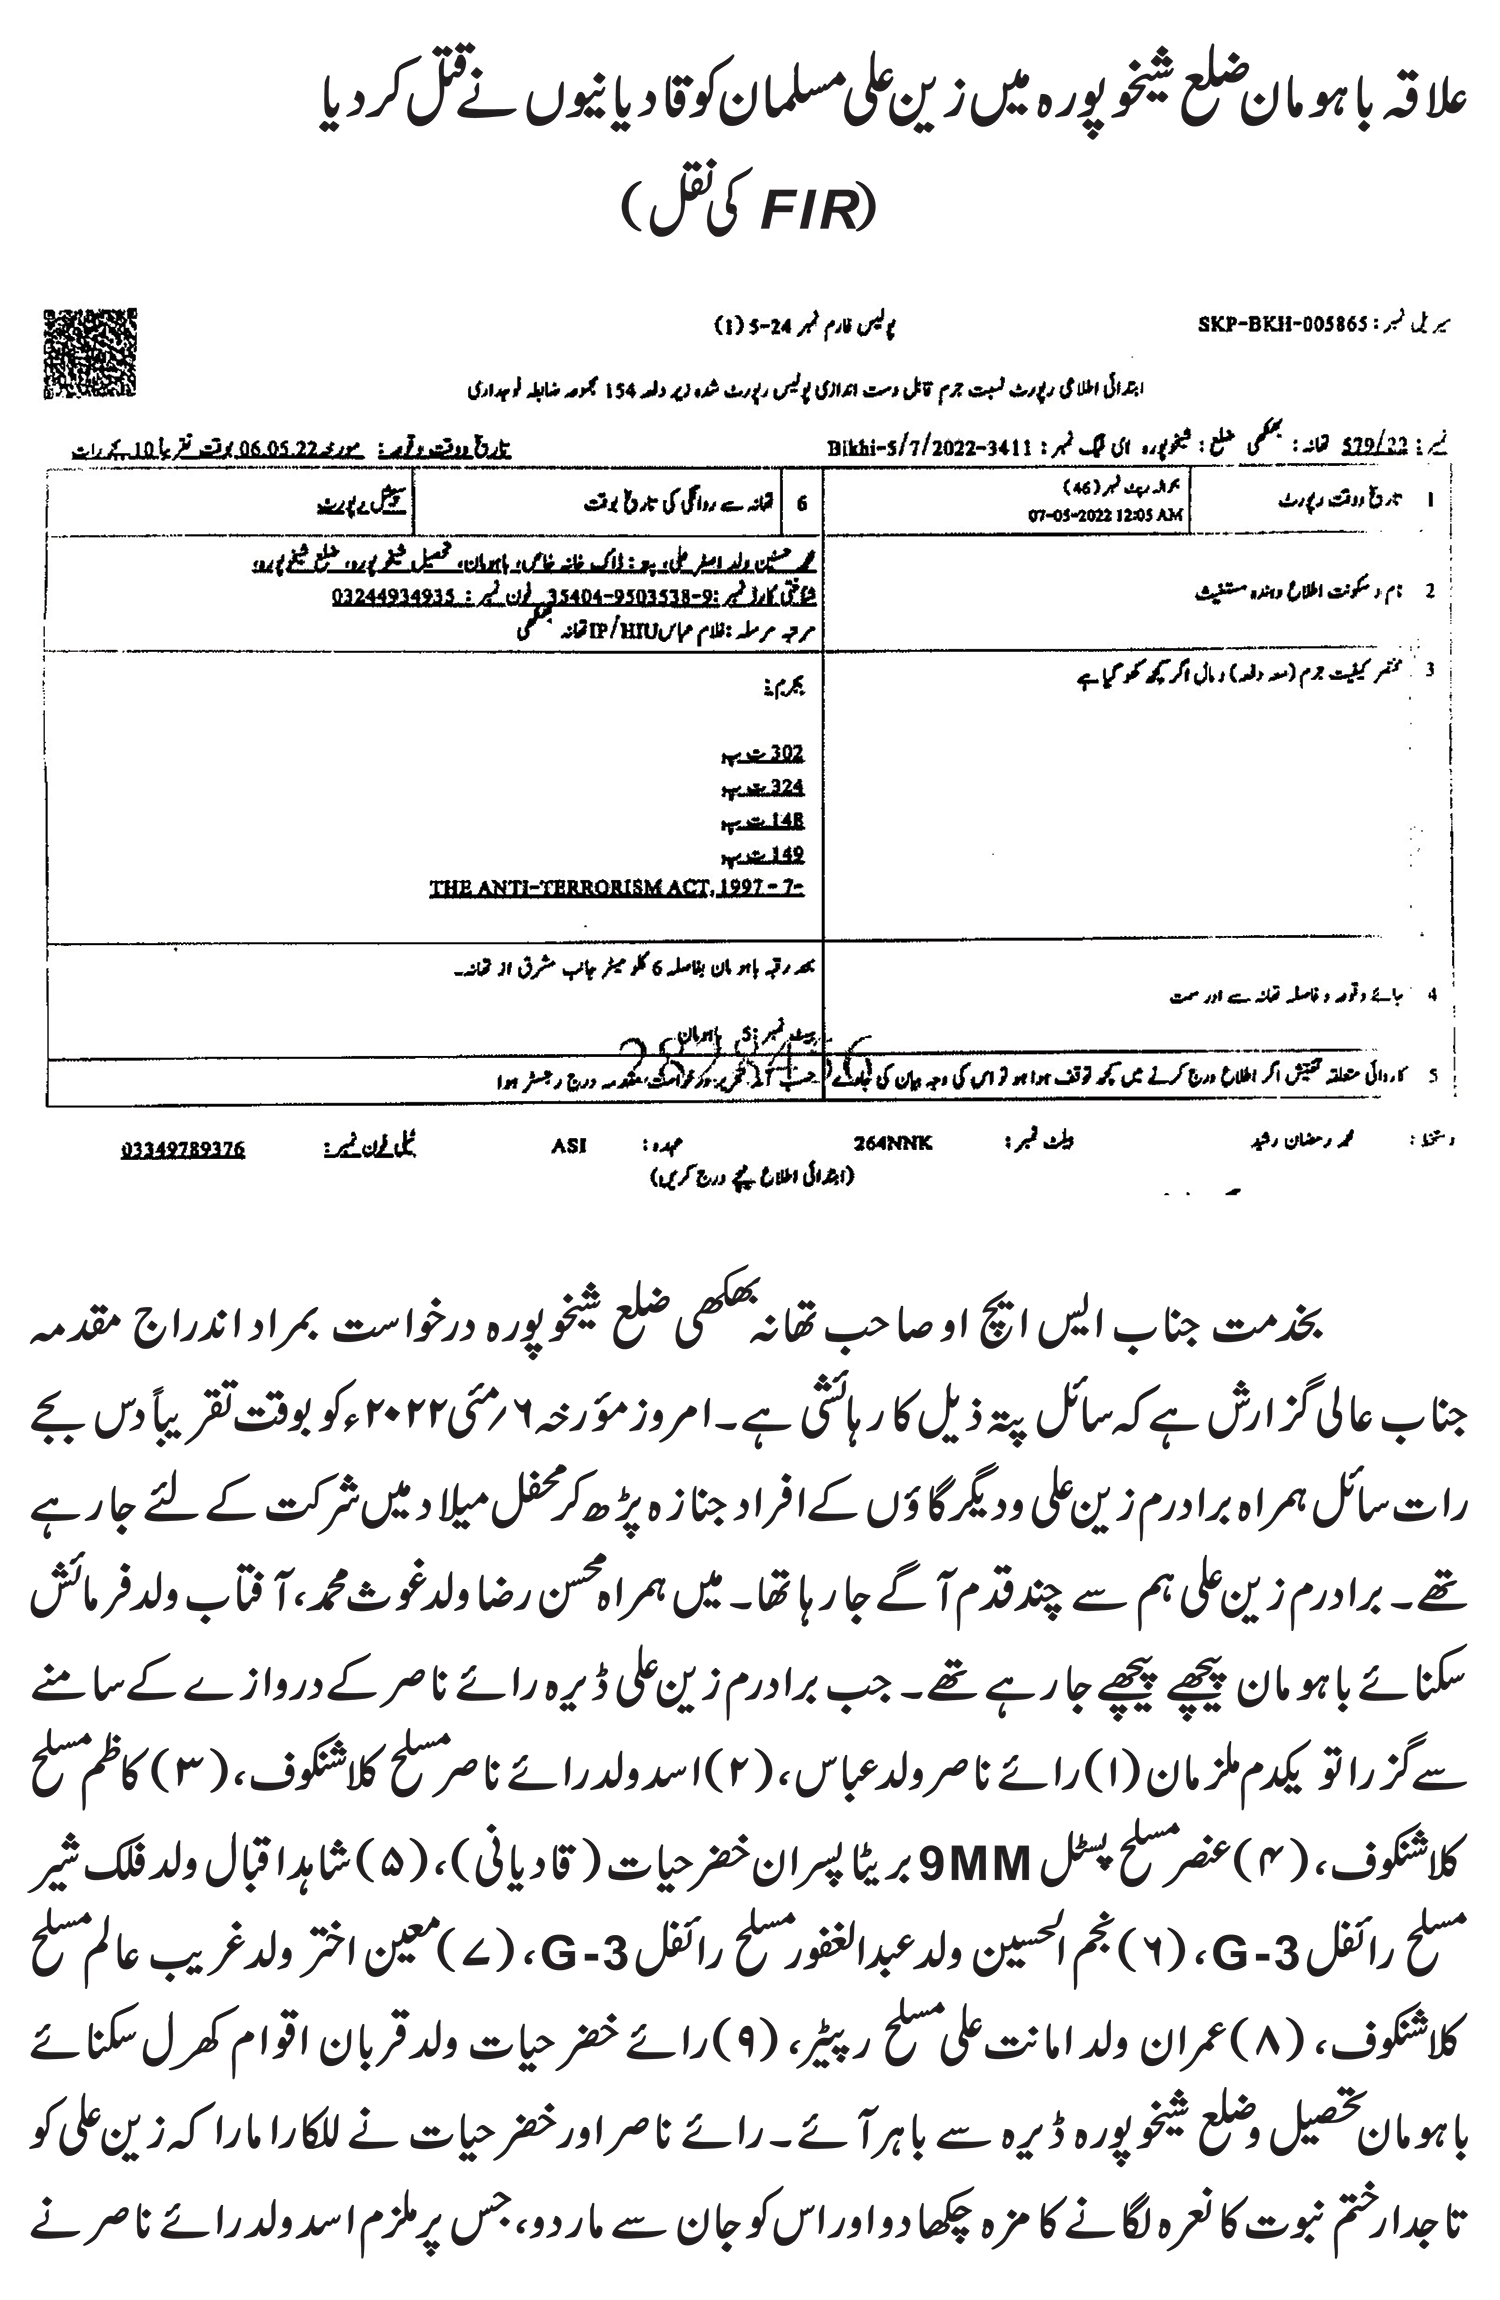 علاقہ باہومان ضلع شیخوپورہ میں زین علی مسلمان کو قادیانیوں نے قتل کر دیا
(FIR کی نقل)
سیریل نمبر: SKP-BKH-005865
پولیس فارم نمبر 24-5 (1)
ابتدائی اطلاعی رپورٹ نسبت جرم قابل دست اندازی پولیس رپورٹ شدہ زیر دفعہ 154 مجموعہ ضابطہ فوجداری
نمبر: 579/22 تھانہ: بھکھی ضلع: شیخوپورہ ای ٹیگ نمبر: Bikhi-5/7/2022-3411
تاریخ و وقت وقوعہ: مورخہ 06.05.22 بوقت تقریباً 10 بجے رات
1 تاریخ و وقت رپورٹ
بحوالہ رپٹ نمبر (46)
07-05-2022 12:05 AM
6 تھانہ سے روانگی کی تاریخ بوقت
سپیشل رپورٹ
2 نام و سکونت اطلاع دہندہ مستغیث
محمد حسنین ولد اصغر علی، پتہ: ڈاک خانہ خاص، باہومان، تحصیل شیخوپورہ، ضلع شیخوپورہ،
شناختی کارڈ نمبر: 35404-9503538-9 فون نمبر: 03244934935
مرتبہ مرسلہ: غلام عباس IP/HIU تھانہ بھکھی
3 مختصر کیفیت جرم (معہ دفعہ) و مال اگر کچھ کھو گیا ہے
بجرم:
302 ت پ
324 ت پ
148 ت پ
149 ت پ
THE ANTI-TERRORISM ACT, 1997 - 7-
4 جائے وقوعہ و فاصلہ تھانہ سے اور سمت
بحد رقبہ باہومان بفاصلہ 6 کلو میٹر جانب مشرق از تھانہ۔
بیٹ نمبر: 5 باہومان
5 کاروائی متعلقہ تفتیش اگر اطلاع درج کرنے میں کچھ توقف ہوا ہو تو اس کی وجہ بیان کی جاوے
حسب آمد تحریر درخواست مقدمہ درج رجسٹر ہوا
دستخط: محمد رمضان رشید بیلٹ نمبر: 264NNK عہدہ: ASI ٹیلی فون نمبر: 03349789376
(ابتدائی اطلاع نیچے درج کریں)
بخدمت جناب ایس ایچ او صاحب تھانہ بھکھی ضلع شیخوپورہ درخواست بمراد اندراج مقدمہ
جناب عالی گزارش ہے کہ سائل پتہ ذیل کا رہائشی ہے۔ امروز مؤرخہ ۶؍مئی ۲۰۲۲ء کو بوقت تقریباً دس بجے
رات سائل ہمراہ برادرم زین علی و دیگر گاؤں کے افراد جنازہ پڑھ کر محفل میلاد میں شرکت کے لئے جا رہے
تھے۔ برادرم زین علی ہم سے چند قدم آگے جا رہا تھا۔ میں ہمراہ محسن رضا ولد غوث محمد، آفتاب ولد فرمائش
سکنائے باہومان پیچھے پیچھے جا رہے تھے۔ جب برادرم زین علی ڈیرہ رائے ناصر کے دروازے کے سامنے
سے گزرا تو یکدم ملزمان (۱) رائے ناصر ولد عباس، (۲) اسد ولد رائے ناصر مسلح کلاشنکوف، (۳) کاظم مسلح
کلاشنکوف، (۴) عنصر مسلح پسٹل 9MM بریٹا پسران خضر حیات (قادیانی)، (۵) شاہد اقبال ولد فلک شیر
مسلح رائفل G-3، (۶) نجم الحسین ولد عبدالغفور مسلح رائفل G-3، (۷) معین اختر ولد غریب عالم مسلح
کلاشنکوف، (۸) عمران ولد امانت علی مسلح رپیٹر، (۹) رائے خضر حیات ولد قربان اقوام کھرل سکنائے
باہومان تحصیل و ضلع شیخوپورہ ڈیرہ سے باہر آئے۔ رائے ناصر اور خضر حیات نے للکارا مارا کہ زین علی کو
تاجدار ختم نبوت کا نعرہ لگانے کا مزہ چکھا دو اور اس کو جان سے مار دو، جس پر ملزم اسد ولد رائے ناصر نے